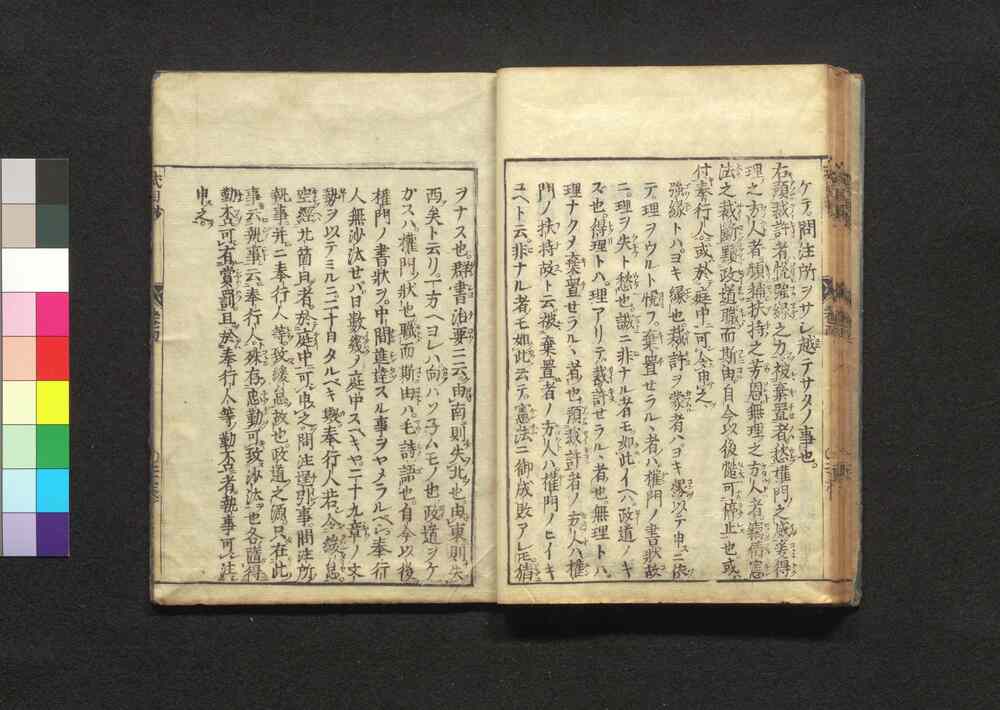 ケテ。問注所ヲサシ越テサタノ事也。
右預裁許者悦強縁之力被棄置者愁權門之威爰得
理之方人者頻稱扶持之芳恩無理之方人者竊猜憲
法之裁斷黷政道職而斯由自今以後慥可停止也或
付奉行人或於庭中可令申之
強縁トハ。ヨキ縁也裁許ヲ蒙者ハヨキ縁ヲ以テ申ニ依
テ。理ヲウルト悦フ。棄置セラルヽ者ハ權門ノ書状故
ニ。理ヲ失ト愁也。誠ニ非ナル者モ。如此イヘハ政道ノキ
ズ也。得理トハ。理アリテ。裁許セラルヽ者也。無理トハ。
理ナクメ棄置セラルヽ者也預裁許者ノ方人ハ權
門ノ扶持故ト云被棄置者ノ方人ハ權門ノヒイキ
ユヘト云非ナル者モ如此云テ。憲法ニ御成敗アレ𪜈猜
ヲナス也。群書治要ニ云。由南則失北也由東則失
西矣ト云リ。一方ヘヨレハ向ハソ子ムモノ也政道ヲケ
カスハ。權門ノ状也職而斯由ハ。毛詩ノ語也。自今以後
權門ノ書状ヲ。中間進達スル事ヲヤメラルヘシ。奉行
人無沙汰セバ日數幾ノ庭中スヘキヤ。二十九章ノ文
勢ヲ以テミルニ二十日タルベキ歟
奉行人若令緩怠
空經廿箇日者於庭中可申之
問注遅引ノ事ハ。問注所
執事并ニ奉行人等致緩怠故也。政道之源只在此
事云執事云奉行人殊有忠勤可致沙汰也各隨得
勤否可有賞罰且於奉行人等勤否者執事可注
申之